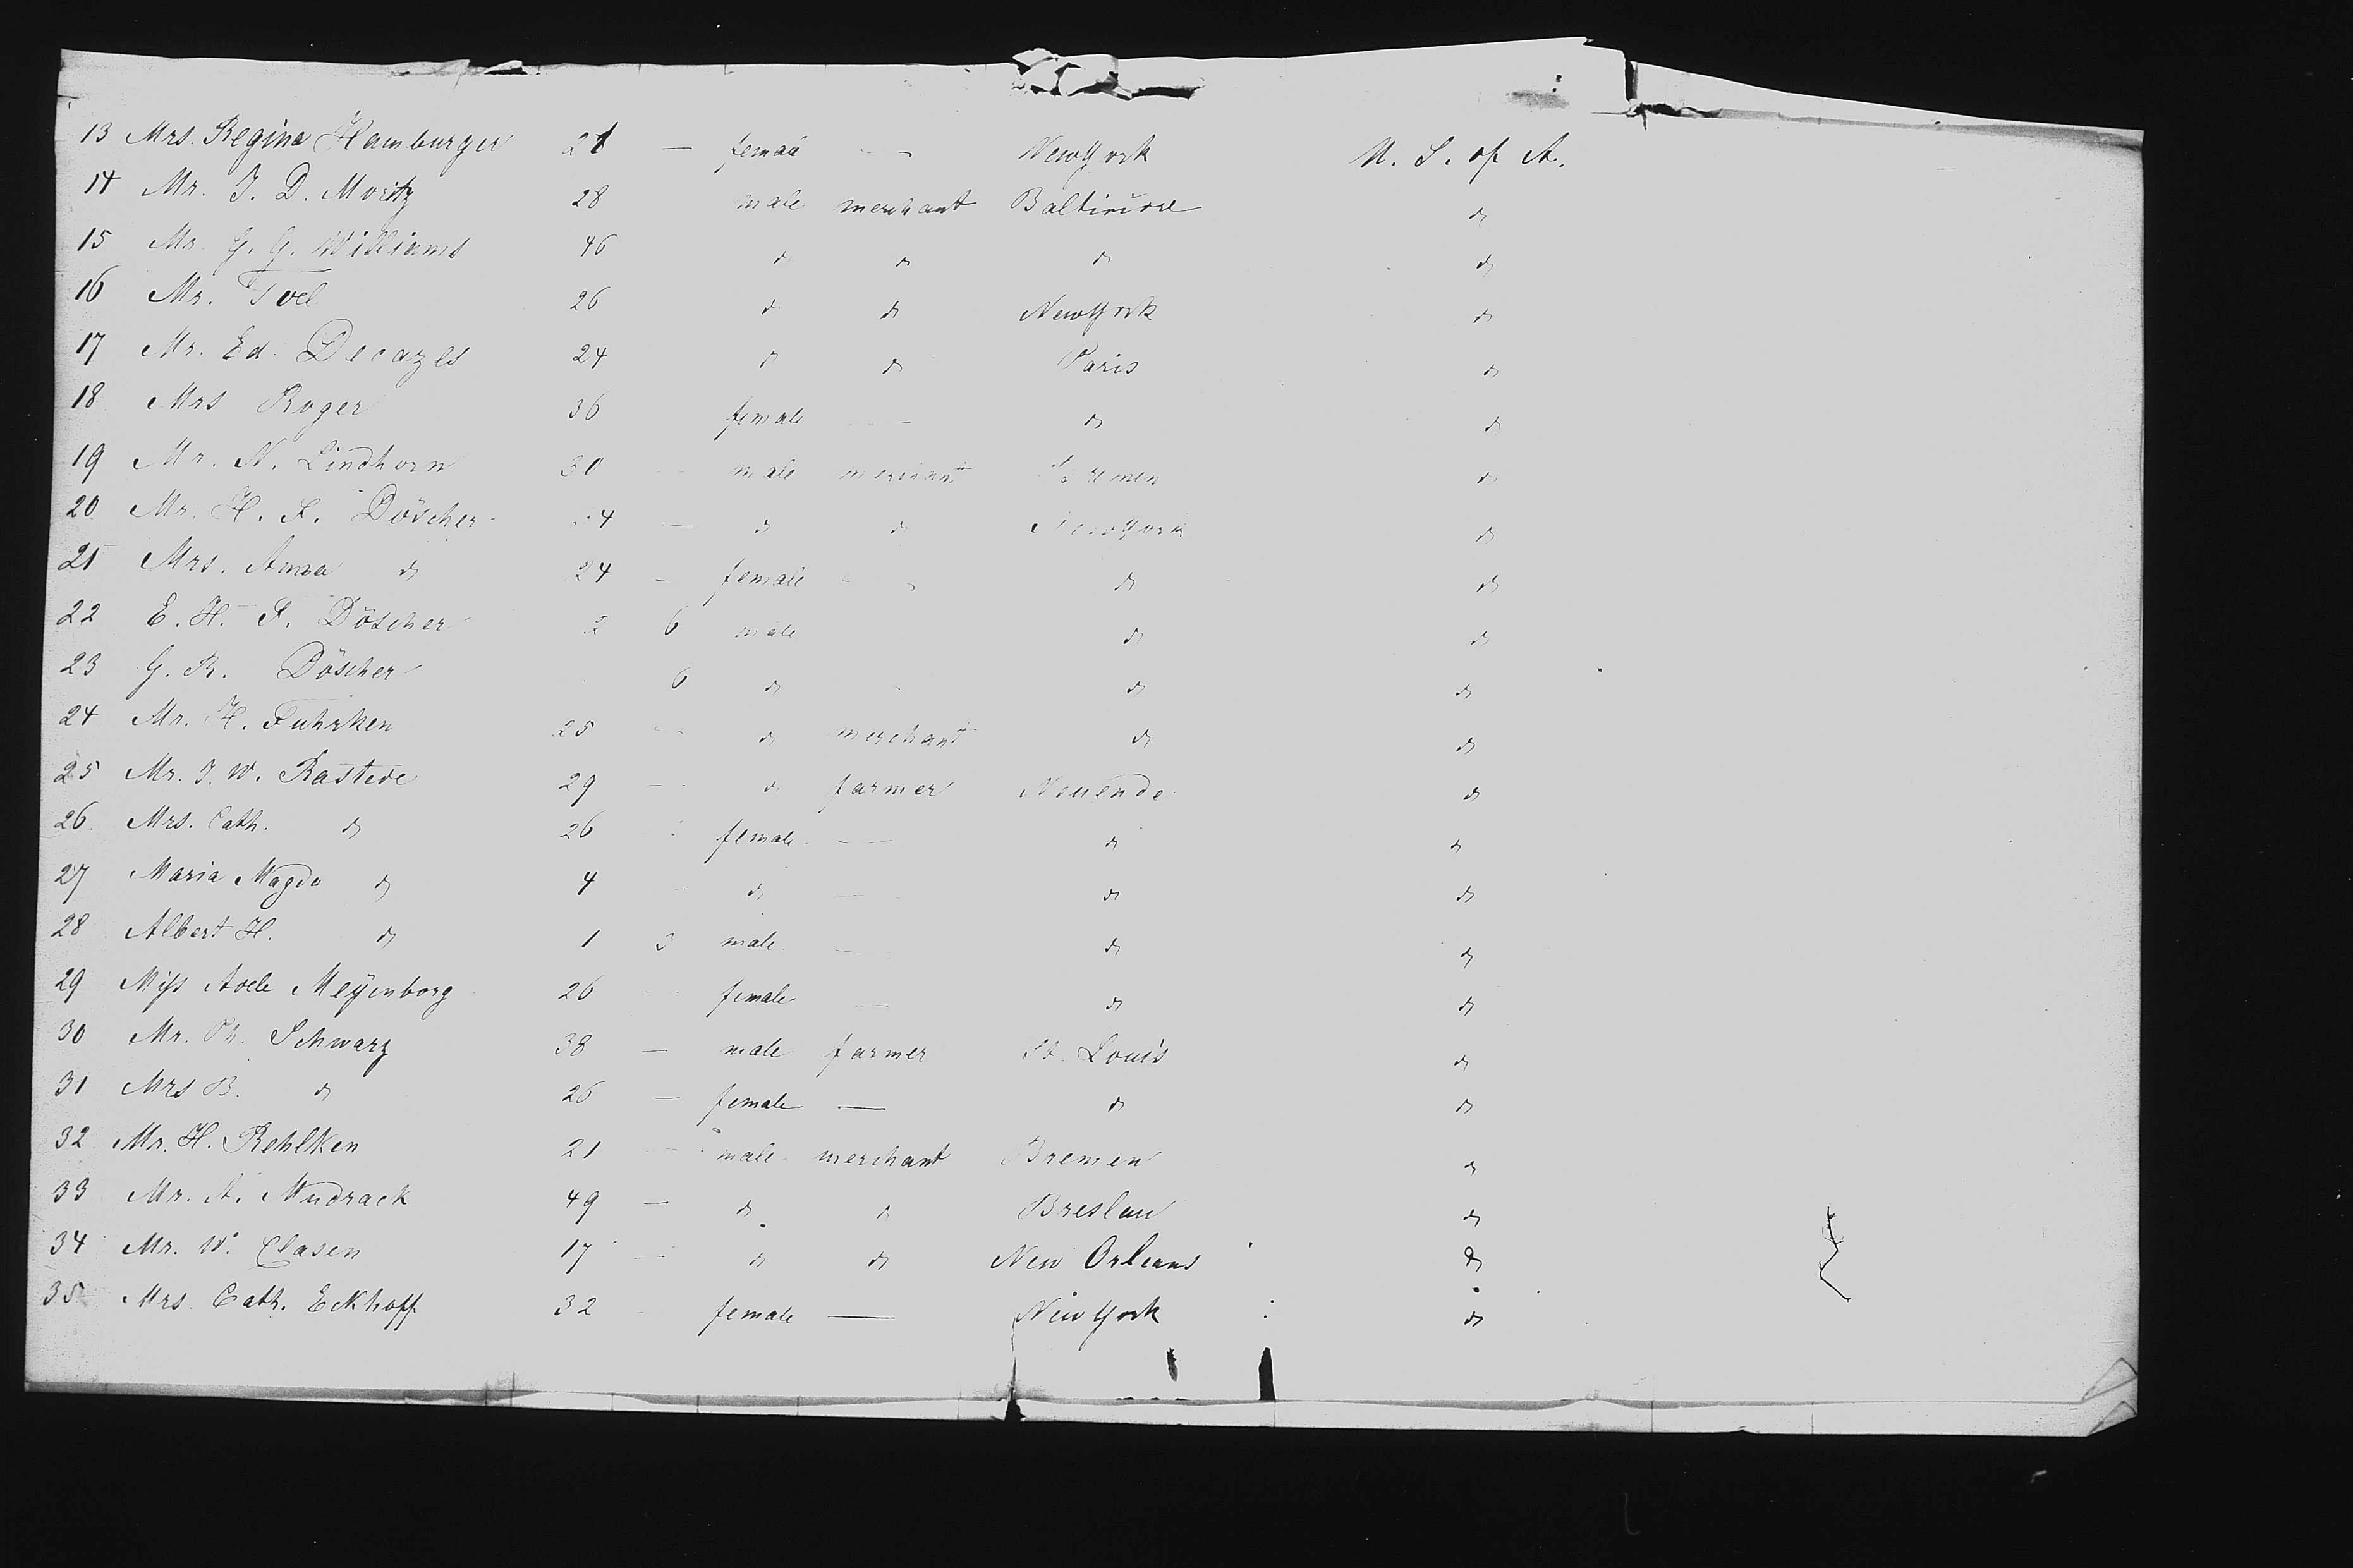 13 Mrs. Regina Hamburger 21 — female — New York U. S. of A.
14 Mr. J. D. Moritz 28 male merchant Baltimore do
15 Mr. G. G. Williams 46 do do do do
16 Mr. 26 do do New York do
17 Mr. Ed. Decazes 24 do do Paris do
18 Mrs Roger 36 female — do do
19 Mr. N. Lindhorn 30 male merchant Bremen do
20 Mr. H. F. Döscher 4 — do do New York do
21 Mrs. Anna do 24 — female do do
22 E. H. F. Döscher 2 6 male do do
23 G. R. Döscher 6 do - do do
24 Mr. H. Fuhrken 25 — do merchant do do
25 Mr. J. W. Rastede 29 — do farmer Neuende do
26 Mrs. Cath. do 26 female — do do
27 Maria Magda do 4 do — do do
28 Albert H. do 1 3 male — do do
29 Miss Meÿenborg 26 female — do do
30 Mr. Ph. Schwarz 38 — male farmer St. Louis do
31 Mrs B. do 26 — female — do do
32 Mr. H. Rehlken 21 male merchant Bremen do
33 Mr. A. Mudrack 49 — do do Breslau do
34 Mr. W. Clasen 17 — do do New Orleans do
35 Mrs. Cath. Eckhoff 32 female — New York do